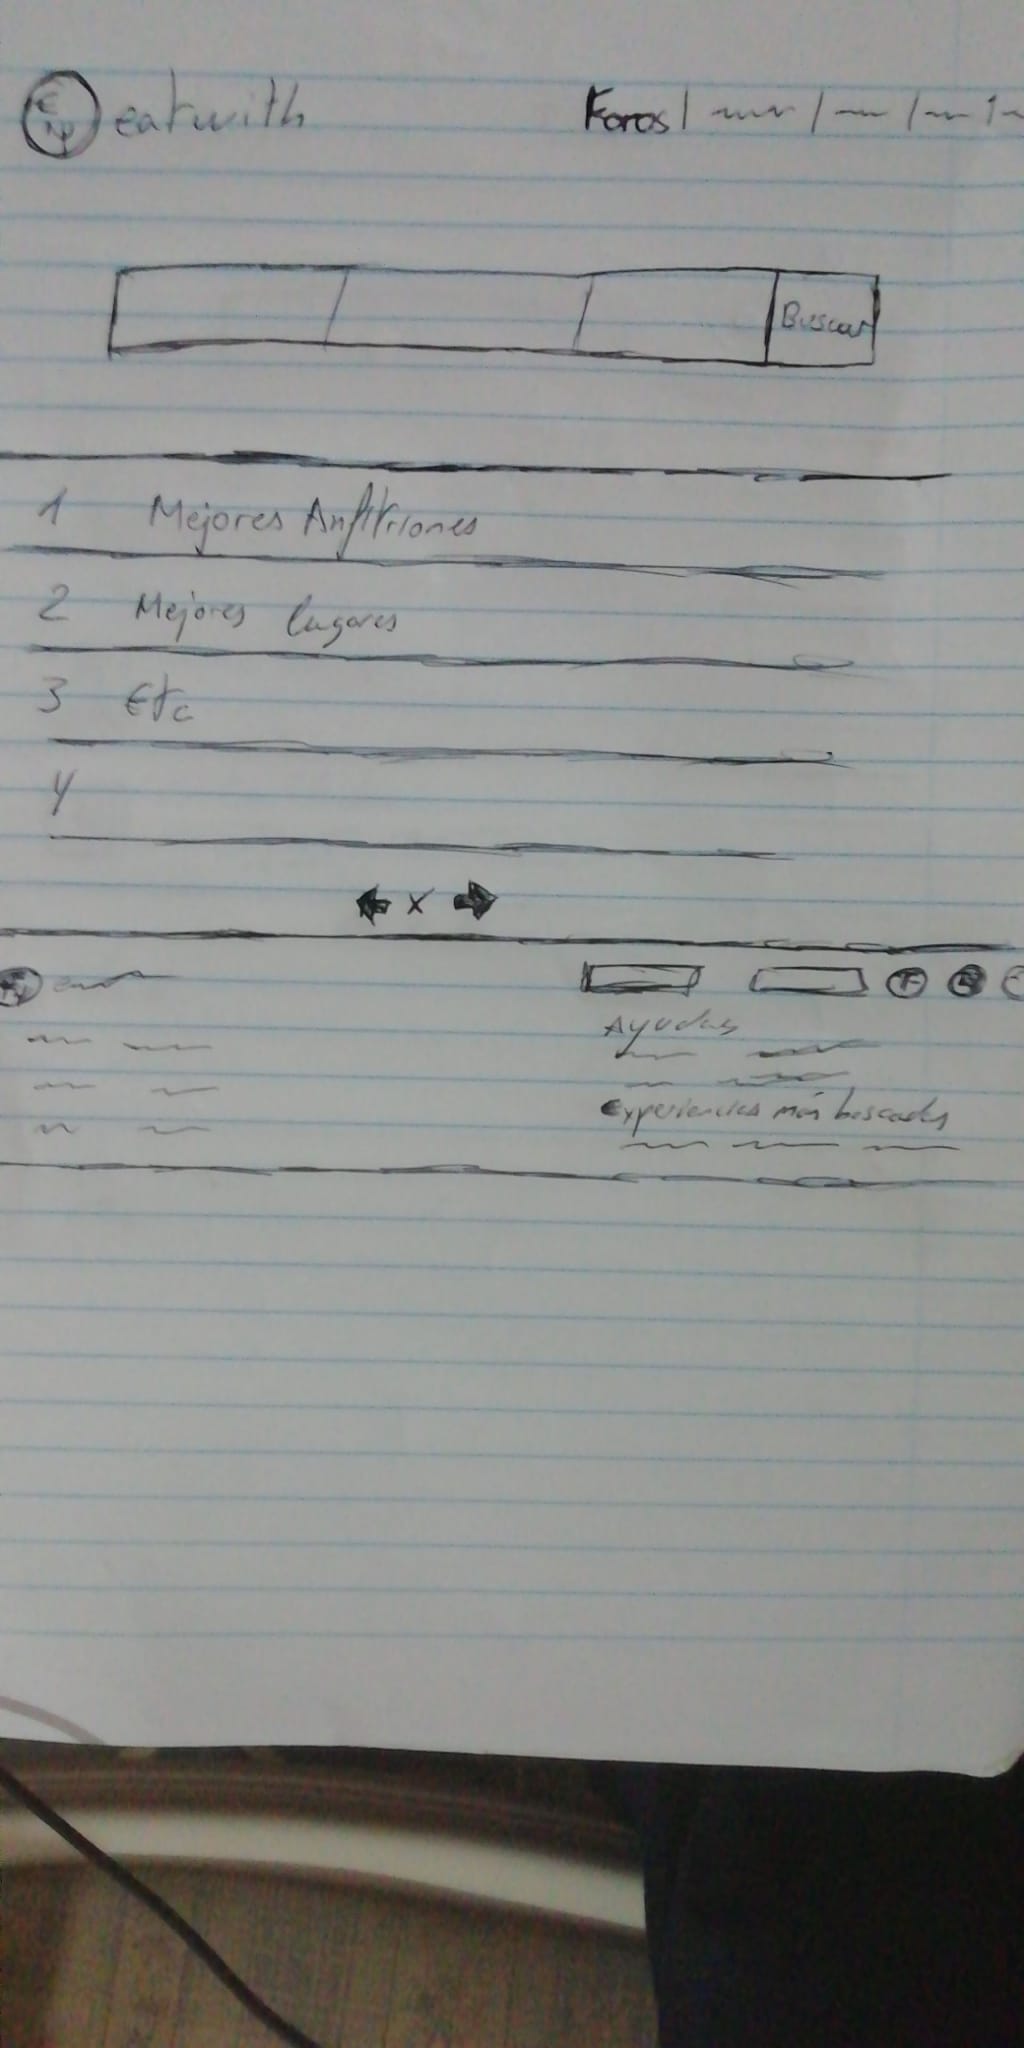 eatwith
Foros | | | |
Buscar
1 Mejores Anfitriones
2 Mejores lugares
3 Etc
4
X
Ayudas
Experiencias más buscadas